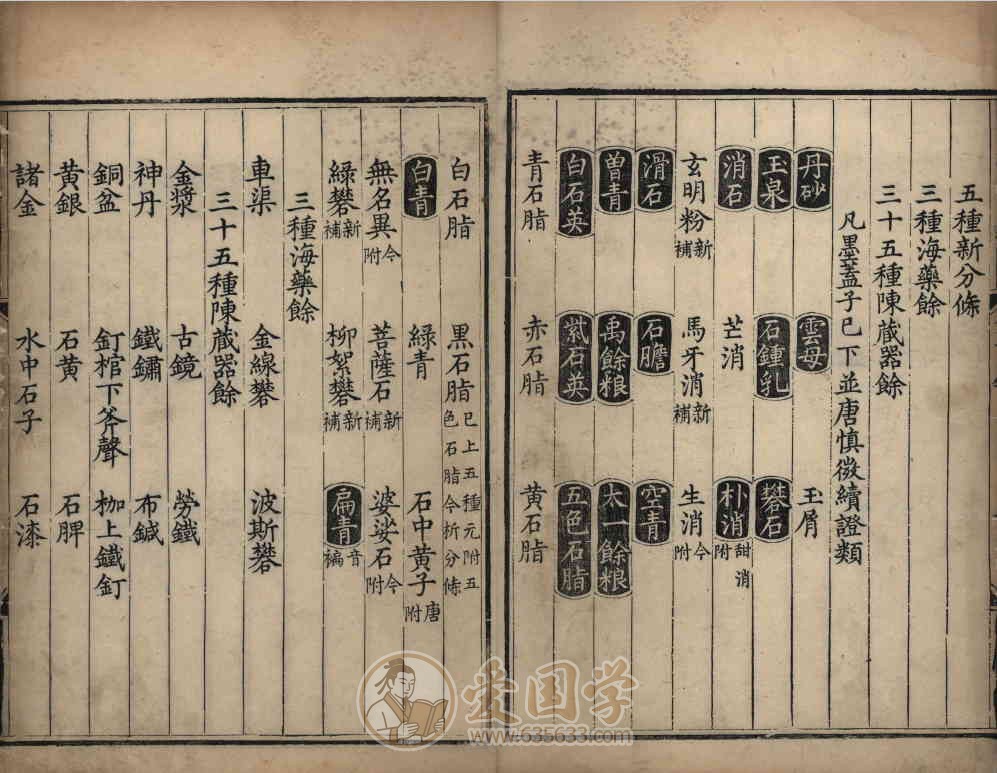 五種新分條
三種海藥餘
三十五種陳藏器餘
凡墨蓋子已下並唐慎微續證類
丹砂 雲母 玉屑
玉泉 石鍾乳 礬石
消石 芒消 朴消甜消附
玄明粉新補 馬牙消新補 生消今附
滑石 石膽 空青
曾青 禹餘粮 太一餘粮
白石英 紫石英 五色石脂
青石脂 赤石脂 黃石脂
白石脂 黑石脂已上五種元附五色石脂今析分條
白青 綠青 石中黃子唐附
無名異今附 菩薩石新補 婆娑石今附
綠礬新補 柳絮礬新補 扁青音褊
三種海藥餘
車渠 金線礬 波斯礬
三十五種陳藏器餘
金漿 古鏡 勞鐵
神丹 鐵鏽 布鍼
銅盆 釘棺下斧聲 枷上鐵釘
黃銀 石黃 石脾
諸金 水中石子 石漆
爱国学
www.635633.com